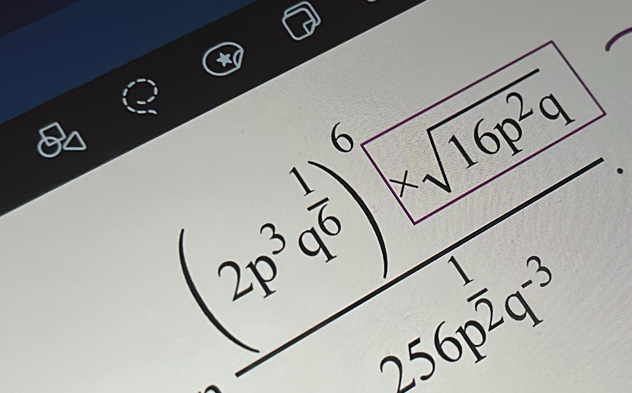 (2p³q^{1/6})⁶ ×√(16p²q)
256p^{1/2}q⁻³ .